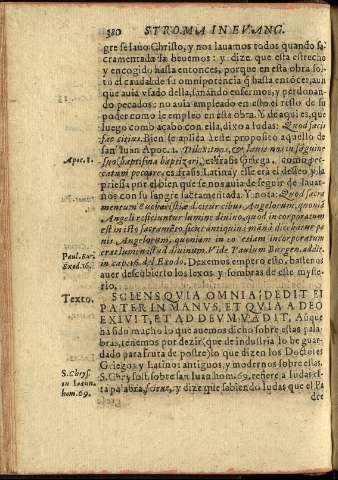 380 STROMA IN EVANG.
gre se lauò Christo, y nos lauamos todos quando sa-
cramentada la beuemos: y dize, que esta estrecho
y encogido hasta entonces, porque en esta obra sol-
tò el caudal de su omnipotencia q hasta entõces aun-
que auia vsado della, sanando enfermos, y perdonan-
do pecados: no auia empleado en esto el resto de su
poder como le empleò en esta obra. Y de aqui es, que
luego como acabò con ella, dixo a Iudas: Quod facis
fac citius. Bien se aplica a este proposito aquello de
san Iuan Apoc. 1. Dilexit nos, & lauit nos in sanguine
Apoc. 1.
suo, baptisma baptizari, es frasis Griega, como pec-
catum peccare, es frasis Latina y esse era el deseo y la
priessa por el bien que se nos auia de seguir de lauar-
nos con su sangre sacramentada. Y nota: Quod sacra-
mentum Eucharistiæ dicitur cibus Angelorum, quonia
Angeli reficiuntur lumine diuino, quod incorporatum
est in isto sacramẽto, sicut antiquitus manà dicebatur panis
Angelorum, quoniam in eo etiam incorporatum
erat lumen illud diuinum. Vide Paulum Burgen. addit.
Paul. Bur.
in cap. 16. del Exodo. Dexemos empero esto, bastenos
Exod. 16.
auer descubierto los lexos y sombras de este myste-
rio.
Texto.
SCIENS QVIA OMNIA DEDIT EI
PATER IN MANVS, ET QVIA A DEO
EXIVIT, ET AD DEVM VADIT. Aũque
ha sido mucho lo que auemos dicho sobre estas pala-
bras, tenemos por dezir (que de industria lo he guar-
dado para fruta de postre) lo que dizen los Doctores
Griegos y Latinos antiguos, y modernos sobre ellas.
S. Chrys.
S. Chrysost. sobre san Iuan hom. 69. refiere a Iudas es-
in Ioann.
hom. 69.
ta palabra, sciens, y dize que sabiendo Iudas que el Pa
dre